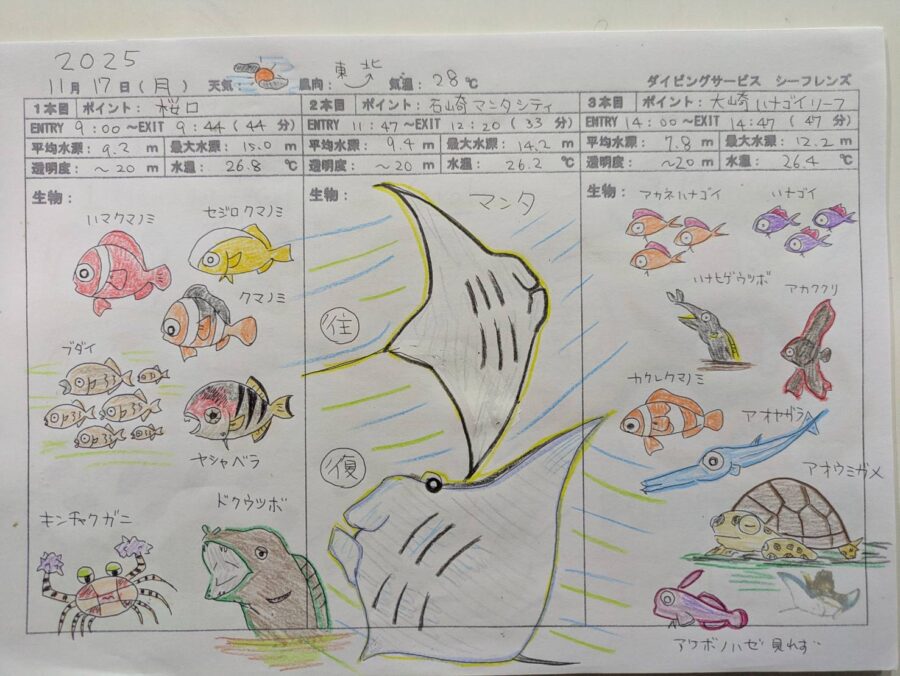 2025
11月17日(月) 天気: 風向: 東北 気温: 28℃ ダイビングサービス シーフレンズ
1本目 ポイント: 桜口
ENTRY 9:00~EXIT 9:44(44分)
平均水深: 9.2 m 最大水深: 15.0 m
透明度: ~20 m 水温: 26.8 ℃
生物:
ハマクマノミ
セジロクマノミ
クマノミ
ブダイ
ヤシャベラ
キンチャクガニ
ドクウツボ
2本目 ポイント: 石崎マンタシティ
ENTRY 11:47~EXIT 12:20(33分)
平均水深: 9.4 m 最大水深: 14.2 m
透明度: ~20 m 水温: 26.2 ℃
生物:
マンタ
往
復
3本目 ポイント: 大崎ハナゴイリーフ
ENTRY 14:00~EXIT 14:47(47分)
平均水深: 7.8 m 最大水深: 12.2 m
透明度: ~20 m 水温: 26.4 ℃
生物:
アカネハナゴイ
ハナゴイ
ハナヒゲウツボ
アカククリ
カクレクマノミ
アオヤガラ
アオウミガメ
アケボノハゼ 見れず…